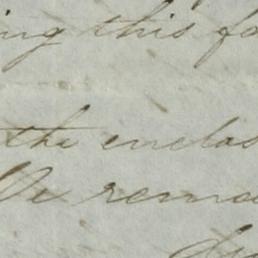 ing this fo
the enclos
We remai